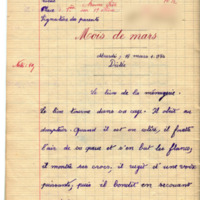 Place:
Signature des parents
Mois de mars
Mardi, 15 mars
Dictée
Le lion de la ménagerie.
Le lion tourne dans sa cage. Il obéit au
dompteur. Quand il est en colère, il fouette
l'air de sa queue et s'en bat les flancs,
il montre ses crocs, il rugit d'une voix
puissante, puis il bondit en secouant